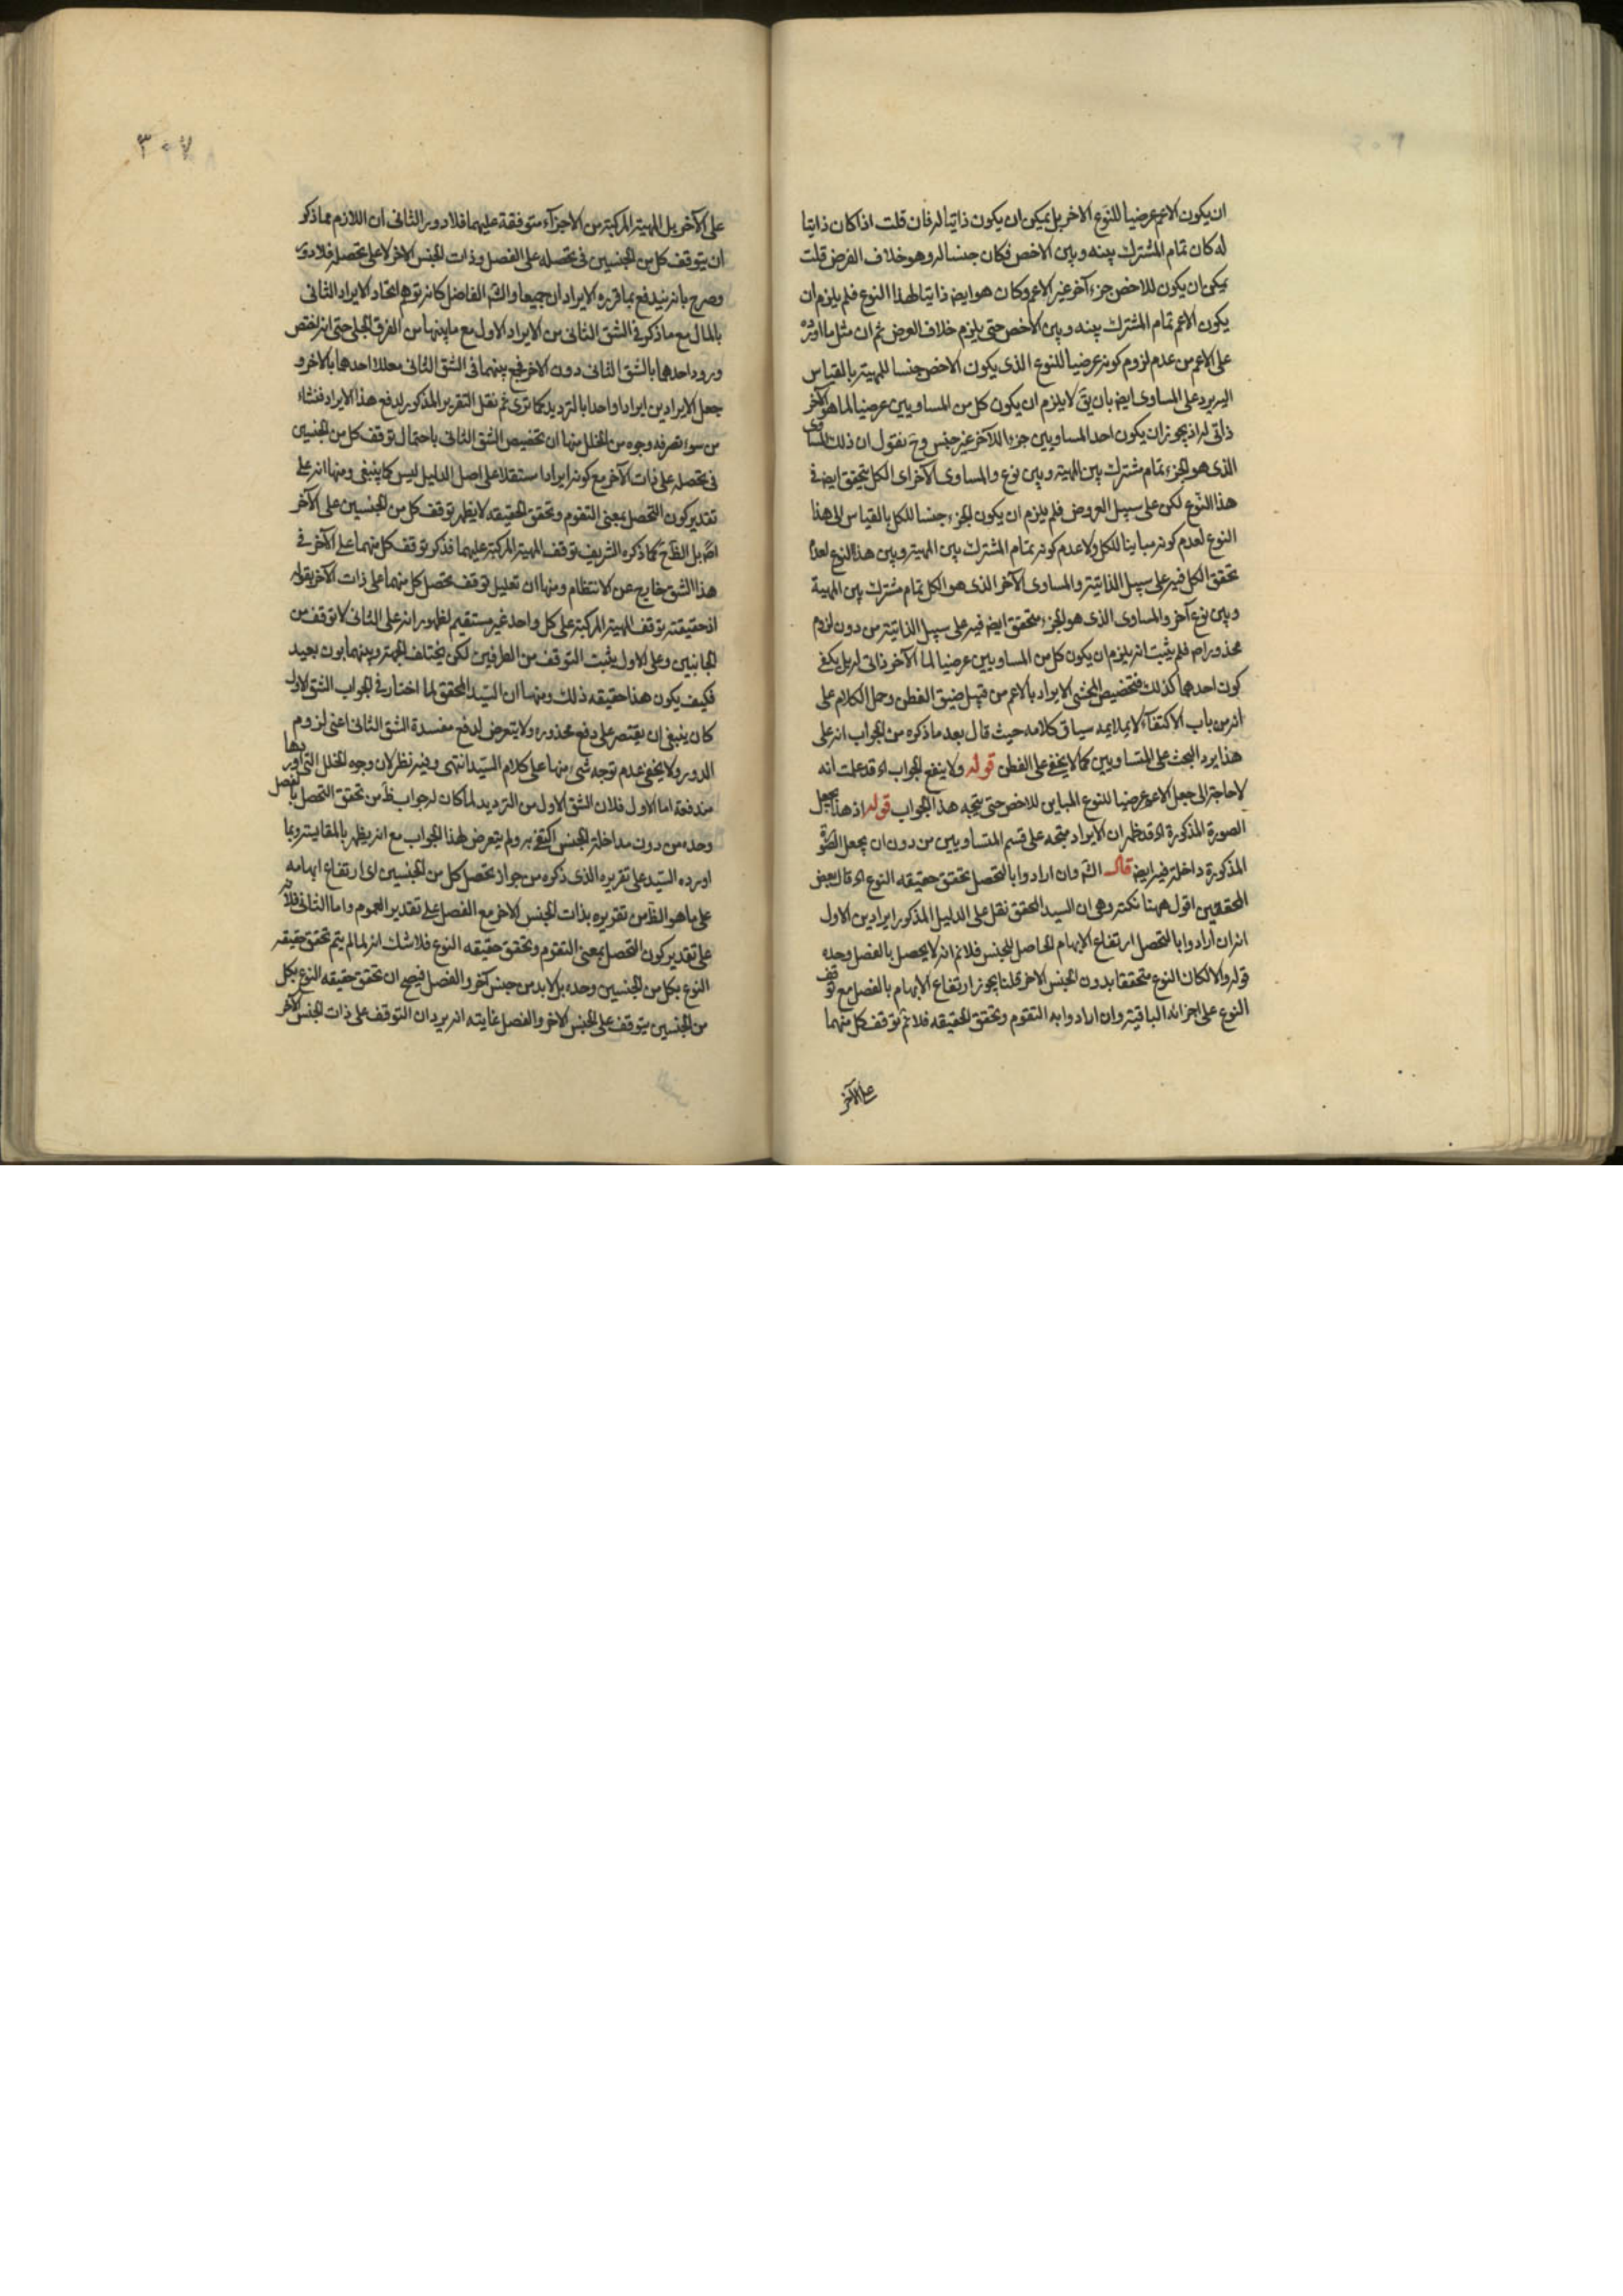 ان يكون الاعم عرضيا للنوع الاخر بل يمكن ان يكون ذاتيا له فان قلت اذا كان ذاتيا
له كان تمام المشترك بينه وبين الاخص فكان جنسا له وهو خلاف الفرض قلت
يمكن ان يكون للاخص جزء آخر غير الاعم وكان هو ايض ذاتيا لهذا النوع فلم يلزم ان
يكون الاعم تمام المشترك بينه وبين الاخص حتى يلزم خلاف الفرض ثم ان مثل ما اورده
على الاعم من عدم لزوم كونه عرضيا للنوع الذى يكون الاخص جنسا للمهية بالقياس
اليه يرد على المساوى ايض بان يق لا يلزم ان يكون كل من المساويين عرضيا لما هو الآخر
ذاتى له اذ يجوز ان يكون احد المساويين جزءا للآخر غير جنس وح نقول ان ذلك المساوى
الذى هو الجزء تمام مشترك بين المهية وبين نوع والمساوى الآخر اى الكل يتحقق ايض فى
هذا النوع لكن على سبيل العروض فلم يلزم ان يكون الجزء جنسا للكل بالقياس الى هذا
النوع لعدم كونه مباينا للكل ولا عدم كونه تمام المشترك بين المهية وبين هذا النوع لعدم
تحقق الكل فيه على سبيل الذاتية والمساوى الآخر الذى هو الكل تمام مشترك بين المهية
وبين نوع آخر والمساوى الذى هو الجزء متحقق ايض فيه على سبيل الذاتية من دون لزوم
محذور اص فلم يثبت انه يلزم ان يكون كل من المساويين عرضيا لما الآخر ذاتى له بل يكفى
كون احدهما كذلك فتخصيص المحشى الايراد بالاعم من قبيل ضيق الفطن وحمل الكلام على
انه من باب الاكتفاء لا يلايمه سياق كلامه حيث قال بعد ما ذكره من الجواب انه على
هذا يرد البحث على المتساويين كما لا يخفى على الفطن قوله ولا ينفع الجواب اه قد علمت انه
لا حاجة الى جعل الاعم عرضيا للنوع المباين للاخص حتى يتجه هذا الجواب قوله اذ هنا يجعل
الصورة المذكورة اه قد ظهر ان الايراد متجه على قسم المتساويين من دون ان يجعل الصورة
المذكورة داخلة فيه ايض قال الش وان ارادوا بالتحصل تحقق حقيقه النوع اه قال بعض
المحققين اقول ههنا نكتة وهى ان السيد المحقق نقل على الدليل المذكور ايرادين الاول
انه ان ارادوا بالتحصل ارتفاع الابهام الحاصل للجنس فلانم انه لا يحصل بالفصل وحده
قوله والا لكان النوع متحققا بدون الجنس الاخر قلنا يجوز ارتفاع الابهام بالفصل مع توقف
النوع على اجزائه الباقية وان ارادوا به التقوم وتحقق الحقيقه فلانم توقف كل منهما
على الآخر
٣٠٧
على الآخر بل المهية المركبة من الاجزاء متوقفة عليهما فلا دور الثانى ان اللازم مما ذكر
ان يتوقف كل من الجنسين فى تحصله على الفصل وذات الجنس الاخر لا على تحصله فلا دور
وصرح بانه يندفع بما قرره الايرادان جميعا والش الفاضل كانه توهم اتحاد الايراد الثانى
بالمال مع ما ذكر فى الشق الثانى من الايراد الاول مع ما بينهما من الفرق الجلى حتى انه اختص
ورود احدهما بالشق الثانى دون الاخر فجمع بينهما فى الشق الثانى معللا احدهما بالاخر و
جعل الايرادين ايرادا واحدا بالترديد كما ترى ثم نقل التقرير المذكور لدفع هذا الايراد فنشاء
من سوء تصرفه وجوه من الخلل منها ان تخصيص الشق الثانى باحتمال توقف كل من الجنسين
فى تحصله على ذات الآخر مع كونه ايرادا مستقلا على اصل الدليل ليس كما ينبغى ومنها انه على
تقدير كون التحصل بمعنى التقوم وتحقق الحقيقه لا يظهر توقف كل من الجنسين على الآخر
اص بل الظ ح كما ذكره الشريف توقف المهية المركبة عليهما فذكر توقف كل منهما على الآخر فى
هذا الشق خارج عن الانتظام ومنها ان تعليل توقف تحصل كل منهما على ذات الآخر بقوله
اذ حقيقته توقف المهية المركبة على كل واحد غير مستقيم لظهور انه على الثانى لا توقف من
الجانبين وعلى الاول يثبت التوقف من الطرفين لكن يختلف الجهة وبينهما بون بعيد
فكيف يكون هذا حقيقه ذلك ومنها ان السيد المحقق لما اختار فى الجواب الشق الاول
كان ينبغى ان يقتصر على دفع محذوره ولا يتعرض لدفع مفسدة الشق الثانى اعنى لزوم
الدور ولا يخفى عدم توجه شىء منها على كلام السيد انتهى وفيه نظر لان وجوه الخلل التى اوردها
مندفعة اما الاول فلان الشق الاول من الترديد لما كان له جواب ظ من تحقق التحصل بالفصل
وحده من دون مداخلة الجنس اكتفى به ولم يتعرض لهذا الجواب مع انه يظهر بالمقايسة وبما
اورده السيد على تقريره الذى ذكره من جواز تحصل كل من الجنسين اى ارتفاع ابهامه
على ما هو الظ من تقريره بذات الجنس الاخر مع الفصل على تقدير العموم واما الثانى فلانه
على تقدير كون التحصل بمعنى التقوم وتحقق حقيقه النوع فلا شك انه لما لم يتم تحقق حقيقه
النوع بكل من الجنسين وحده بل لا بد من جنس آخر والفصل فيصح ان تحقق حقيقه النوع بكل
من الجنسين يتوقف على الجنس الاخر والفصل غايته انه يرد ان التوقف على ذات الجنس الآخر